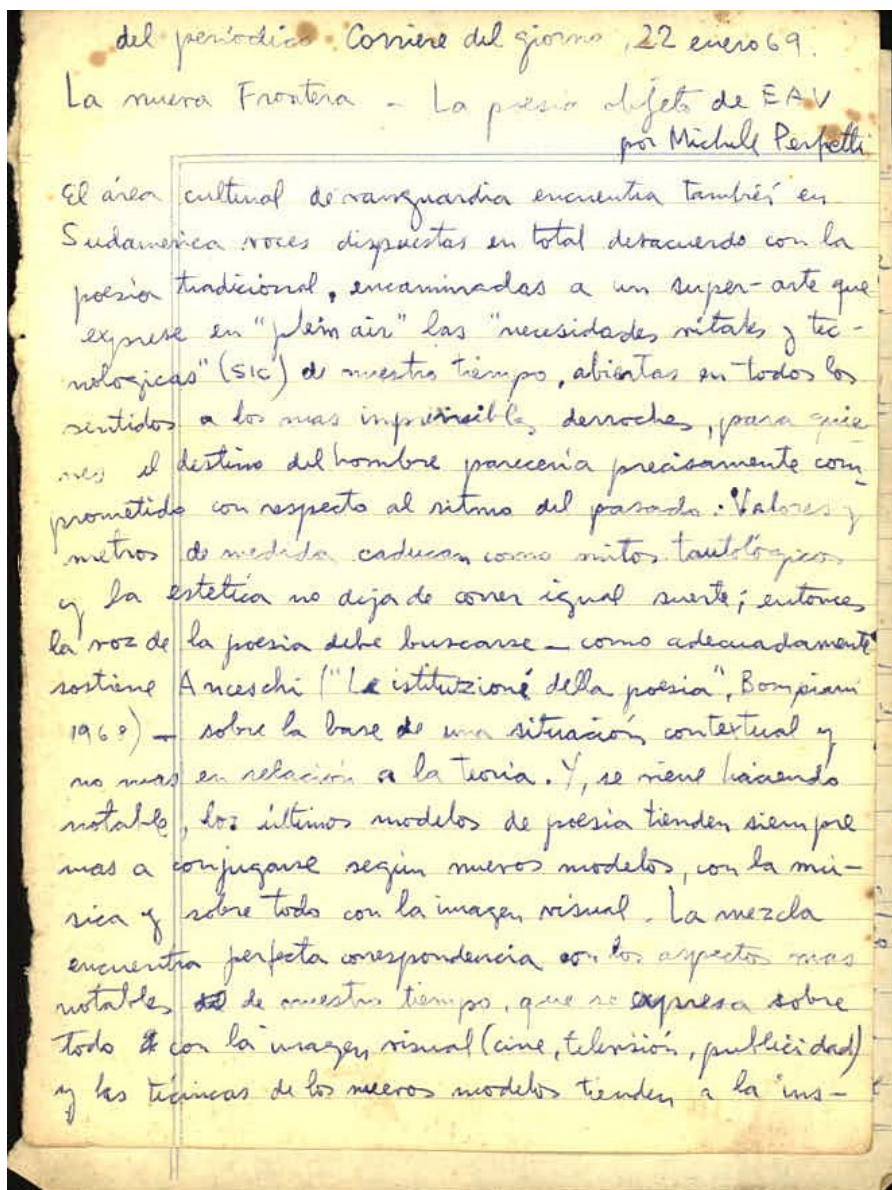 del periodico Corriere del giorno, 22 enero 69.
La nueva Frontera - La poesia objeto de EAV
por Michele Perfetti
El área cultural de vanguardia encuentra también en
Sudamerica voces dispuestas en total desacuerdo con la
poesía tradicional, encaminadas a un super-arte que
exprese en "plein air" las "necesidades vitales y tec-
nologicas" (SIC) de nuestro tiempo, abiertas en todos los
sentidos a los mas derroches, para quie
nes el destino del hombre parecería precisamente com-
prometido con respecto al ritmo del pasado. Valores y
metros de medida caducan como mitos tautológicos
y la estética no deja de correr igual suerte; entonces
la voz de la poesia debe buscarse - como adecuadamente
sostiene Anceschi ("Le istituzioni della poesia", Bompiani
) - sobre la base de una situación contextual y
no mas en relación a la teoria. Y, se viene haciendo
notable, los últimos modelos de poesia tienden siempre
mas a conjugarse según nuevos modelos, con la mú-
sica y sobre todo con la imagen visual. La mezcla
encuentra perfecta correspondencia con los aspectos mas
notables de nuestro tiempo, que se expresa sobre
todo con la imagen visual (cine, televisión, publicidad)
y las técnicas de los nuevos modelos tienden a la "ins-